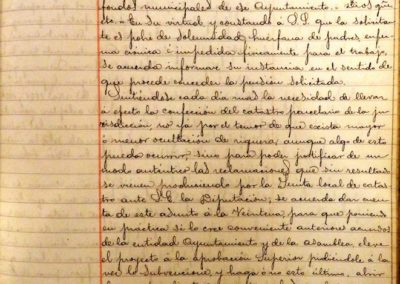 fondos municipales de ese Ayuntamiento.
En su virtud y constando á S.S. que la solicitan-
te es pobre de solemnidad huérfana de padres enfer-
ma crónica é impedida físicamente para el trabajo,
se acuerda informar su instancia en el sentido de
que procede conceder la pensión solicitada.
Sintiéndose cada día mas la necesidad de llevar
á efecto la confección del catastro parcelario de la ju-
risdicción, no ya por el temor de que exista mayor
ó menor ocultación de riqueza, aunque algo de esto
pueda ocurrir, sino para poder justificar de un
modo auténtico las reclamaciones que sin resultado
se vienen produciendo por la Junta local de catas-
tro ante S.E. la Diputación, se acuerda dar cuen-
ta de este asunto á la Veintena, para que poniendo
en práctica si lo cree conveniente anteriores acuerdos
de la entidad Ayuntamiento y de la Asamblea, eleve
el proyecto á la aprobación Superior pidiéndole á la
vez la subvención y haga ó no esto último, abrir